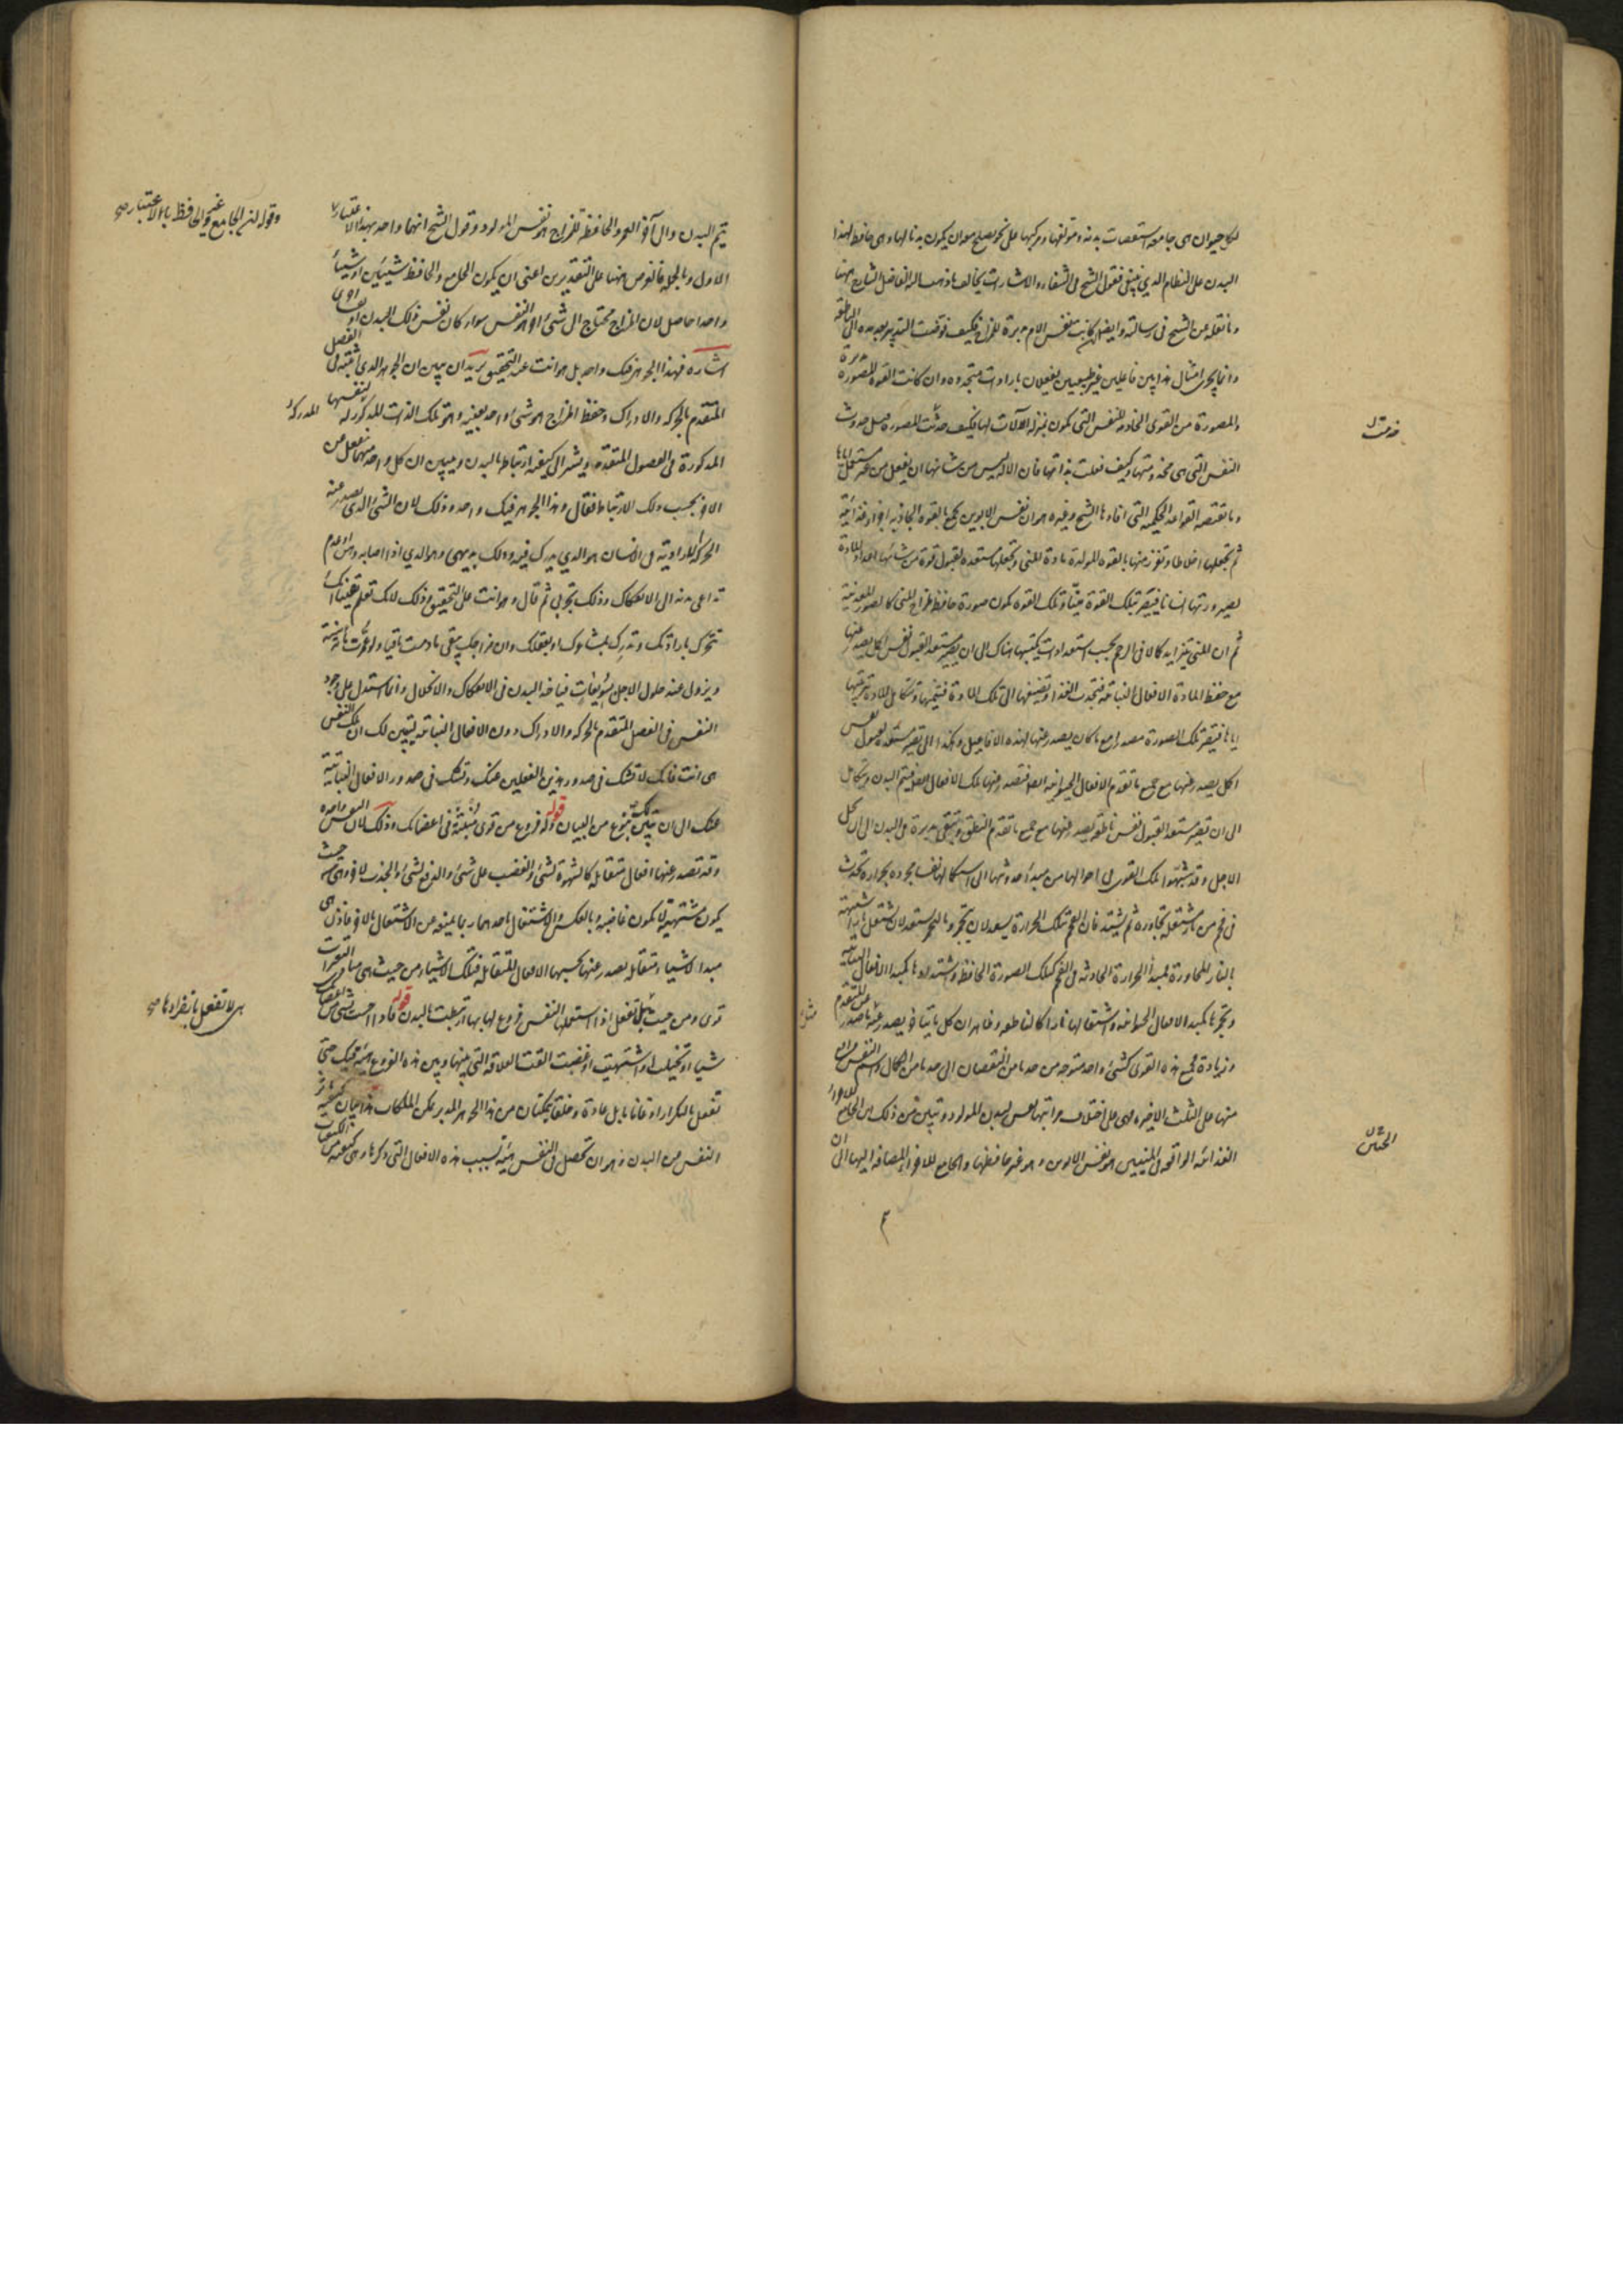 لكل حيوان هى جامعة استقصات بدنه ومؤلفها ومركبها على نحو يصلح معه ان يكون بدنا لها وهى حافظة لهذا
البدن على النظام الذي ينبغى فقول الشيخ فى الشفاء والاشارات يخالف ما ذهب اليه الفاضل الشارح ههنا
وما نقله عن الشيخ فى رسالته وايضا ان كانت نفس الام مدبرة للمزاج فكيف فوضت التدبير بعد مدة الى الناطقة
وانما يجرى امثال هذا بين فاعلين غير طبيعيين يفعلان بارادات متجددة وان كانت القوة المصورة مدبرة
والمصورة من القوى الخادمة للنفس التى تكون بمنزلة الآلات لها فكيف حدثت المصورة قبل حدوث
النفس التى هى مخدومتها وكيف فعلت بذاتها فان الآلة ليس من شانها ان يفعل من غير مستعمل اياها
وما تقتضيه القواعد الحكمية التى افادها الشيخ وغيره هو ان نفس الابوين تجمع بالقوة الجاذبة اجزاء غذائية
ثم تجعلها اخلاطا وتفرز منها بالقوة المولدة مادة المنى وتجعلها مستعدة لقبول قوة من شانها اعداد المادة
لصيرورتها انسانا فتصير بتلك القوة منيا وتلك القوة تكون صورة حافظة لمزاج المنى كالصور المعدنية
ثم ان المنى يتزايد كمالا فى الرحم بحسب استعدادات يكتسبها هناك الى ان يصير مستعدا لقبول نفس اكمل يصدر عنها
مع حفظ المادة الافعال النباتية فتجذب الغذاء وتضيفها الى تلك المادة فتنميها وتتكامل المادة بتربيتها
اياها فتصير تلك الصورة مصدرا مع ما كان يصدر عنها لهذه الافاعيل وهكذا الى ان تصير مستعدة لقبول نفس
اكمل يصدر عنها مع جميع ما تقدم الافعال الحيوانية ايضا فتصدر عنها تلك الافعال ايضا فيتم البدن ويتكامل
الى ان تصير مستعدا لقبول نفس ناطقة يصدر عنها مع جميع ما تقدم النطق وتبقى مدبرة فى البدن الى ان يحل
الاجل وقد شبهوا تلك القوى فى احوالها من مبدأ حدوثها الى استكمالها نفسا مجردة بحرارة تحدث
فى فحم من نار مشتعلة تجاوره ثم يشتد فان الفحم بتلك الحرارة يستعد لان يتجمر وبالتجمر يستعد لان يشتعل نارا شبيهة
بالنار المجاورة فمبدأ الحرارة الحادثة فى الفحم كتلك الصورة الحافظة واشتدادها كمبدأ الافعال النباتية
وتجمرها كمبدأ الافعال الحيوانية واشتعالها نارا كالناطقة وظاهر ان كل ما يتأخر يصدر عنه مثل ما صدر عن المتقدم
وزيادة فجميع هذه القوى كشئ واحد متوجه من حد ما من النقصان الى حد ما من الكمال واسم النفس واقع
منها على الثلث الاخيرة فهى على اختلاف مراتبها نفس لبدن المولود وتبين من ذلك ان الجامع للاجزاء
الغذائية الواقعة فى المنيين هو نفس الابوين وهو غير حافظها والجامع للاجزاء المضافة اليها الى ان
خدمت
الجنين
يتم البدن والى آخر العمر والحافظة للمزاج هو نفس المولود وقول الشيخ انهما واحد بهذا الاعتبار
الاول وبالجملة فالغرض ههنا على التقديرين اعنى ان يكون الجامع والحافظ شيئين او شيئا
واحدا حاصل لان المزاج محتاج الى شئ آخر هو النفس سواء كان نفس ذلك البدن او نفسا اخرى
اشارة فهذا الجوهر فيك واحد بل هو انت عند التحقيق يريد ان يبين ان الجوهر الذي اثبته فى الفصل
المتقدم بالحركة والادراك وحفظ المزاج هو شئ واحد بعينه وهو تلك الذات المدركة لنفسها
المذكورة فى الفصول المتقدمة ويشير الى كيفية ارتباطه بالبدن ويبين ان كل واحد منهما ينفعل من
الآخر بحسب ذلك الارتباط فقال وهذا الجوهر فيك واحد وذلك لان الشئ الذي يصدر عنه
الحركة الارادية فى الانسان هو الذي يدرك فيه وذلك بديهى وهو الذي اذا اصابه وهن او عدم
تداعى بدنه الى الانفكاك وذلك تجربى ثم قال وهو انت على التحقيق وذلك لانك تعلم يقينا انك
تتحرك بارادتك وتدرك بمشاعرك او بعقلك وان مزاجك يبقى ما دمت باقيا ولو عمرت مائة سنة
ويزول عند حلول الاجل بسويعات فياخذ البدن فى الانفكاك والانحلال وانما استدل على وجود
النفس فى الفصل المتقدم بالحركة والادراك دون الافعال النباتية ليتبين لك ان تلك النفس
هى انت فانك لا تشك فى صدور هذين الفعلين عنك وتشك فى صدور الافعال النباتية
عنك الى ان يتبين لك بنوع من البيان قوله وله فروع من قوى منبثة فى اعضائك وذلك لان النفس واحدة
وقد تصدر عنها افعال متقابلة كالشهوة لشئ والغضب على شئ والدفع لشئ والجذب لآخر وهى من حيث
يكون مشتهية لا تكون غاضبة وبالعكس والاشتغال باحدهما ربما يمنعه عن الاشتغال بالآخر فاذن هى
مبدأ لاشياء متقابلة يصدر عنها بحسبها الافعال المتقابلة فتلك الاشياء من حيث هى مبادى التغيرات
قوى ومن حيث تفعل اذا استعملها النفس فروع لها بها ارتبطت بالبدن قوله فاذا احسست بشئ من اعضائك
شيئا او تخيلت او اشتهيت او غضبت القت العلاقة التى بينها وبين هذه الفروع هيئة فيك حتى
تفعل بالتكرار اذعانا ما بل عادة وخلقا يتمكنان من هذا الجوهر المدبر تمكن الملكات هذا بيان كيفية تأثر
النفس من البدن وهو ان تحصل فى النفس هيئة بسبب هذه الافعال التى ذكرها وهى كيفية من الكيفيات
وقوله ان الجامع غير الحافظ بالاعتبار صح
هى لا تفعل بانفرادها صح